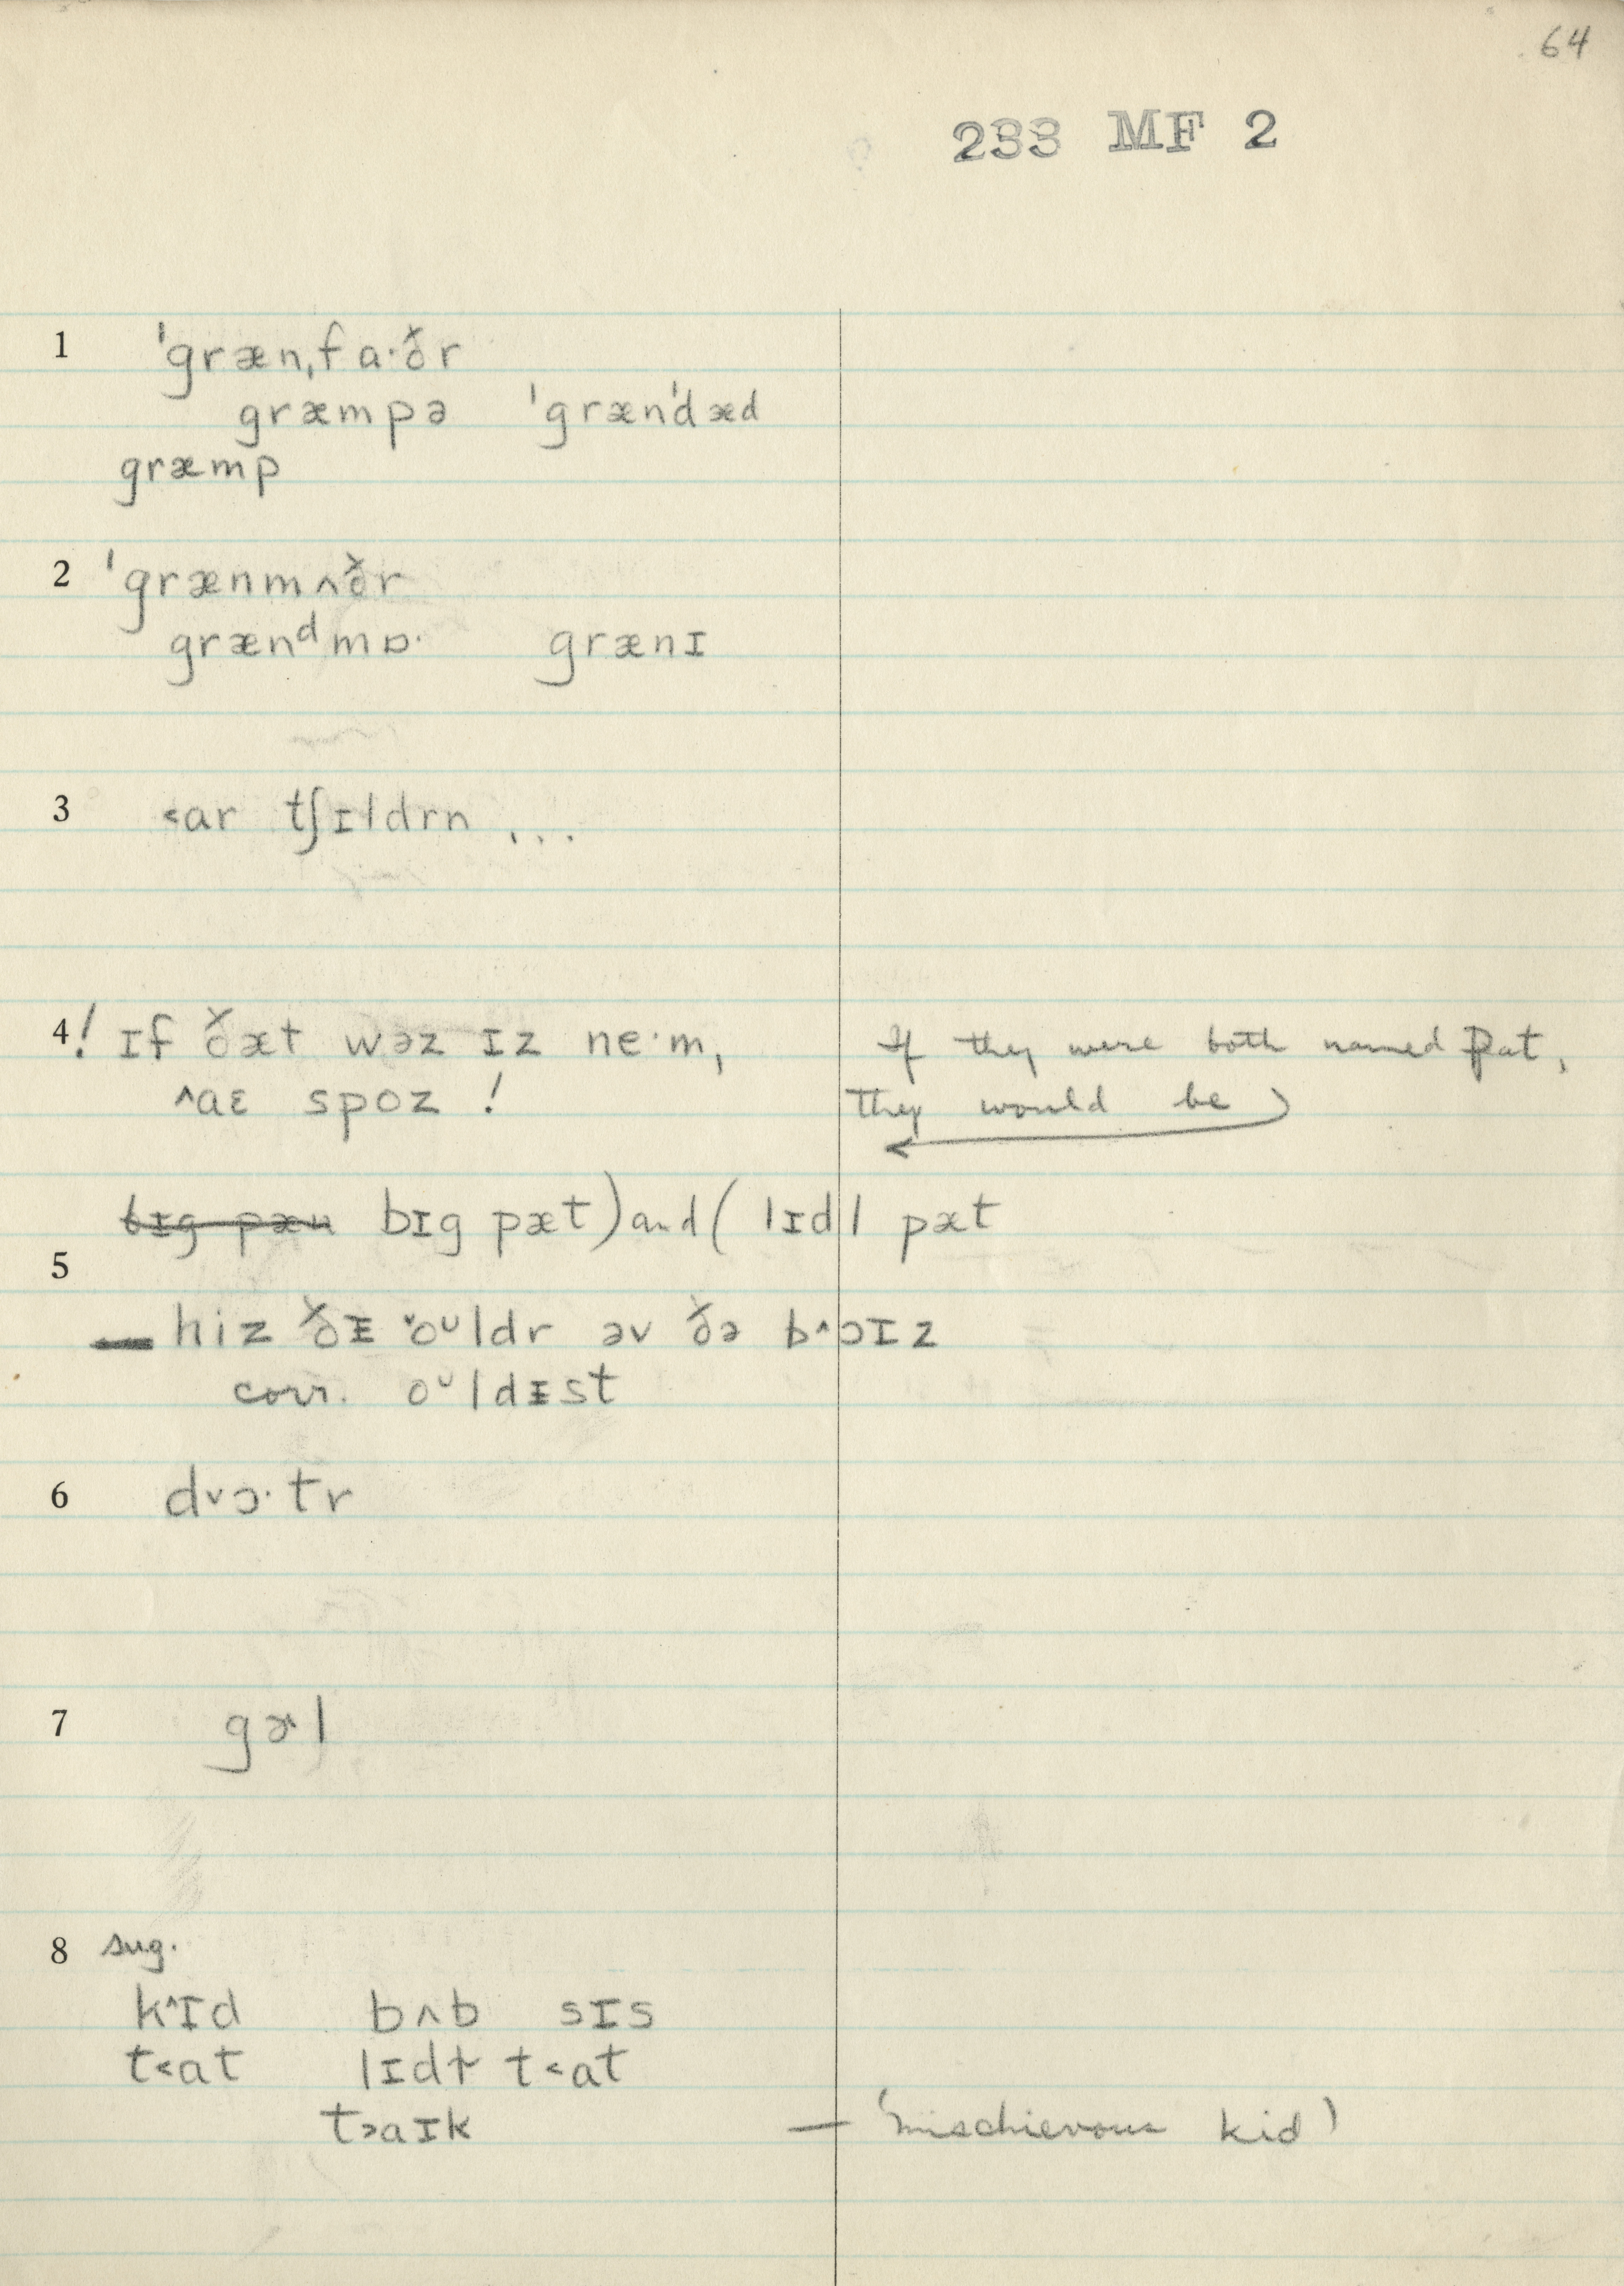 64
233 MF 2
1 ˈgrænˌfa·ðr
græmpə ˈgrænˈdæd
græmp
2 ˈgrænmʌðr
grænᵈmɒ· grænɪ
3 ˂ar tʃɪldrn ...
4 ! ɪf ðæt wəz ɪz ne·m, If they were both named Pat,
˄aɛ spoz ! They would be
bɪg pæt) and (lɪdl pæt
5
hiz ðɪ ˅oᵁldr əv ðə b˄ɔɪz
corr. oᵁldɪst
6 d˅ɔ·tr
7 gɚl
8 sug.
k˄ɪd bʌb sɪs
t˂at lɪdɫ t˂at
t˃aɪk — 'mischievous kid'